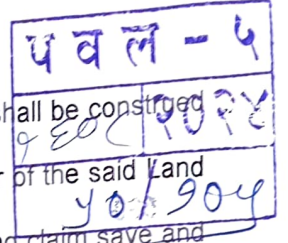 पवल - ५
hall be construed
२०२४
of the said Land
५०/१०५
claim save and